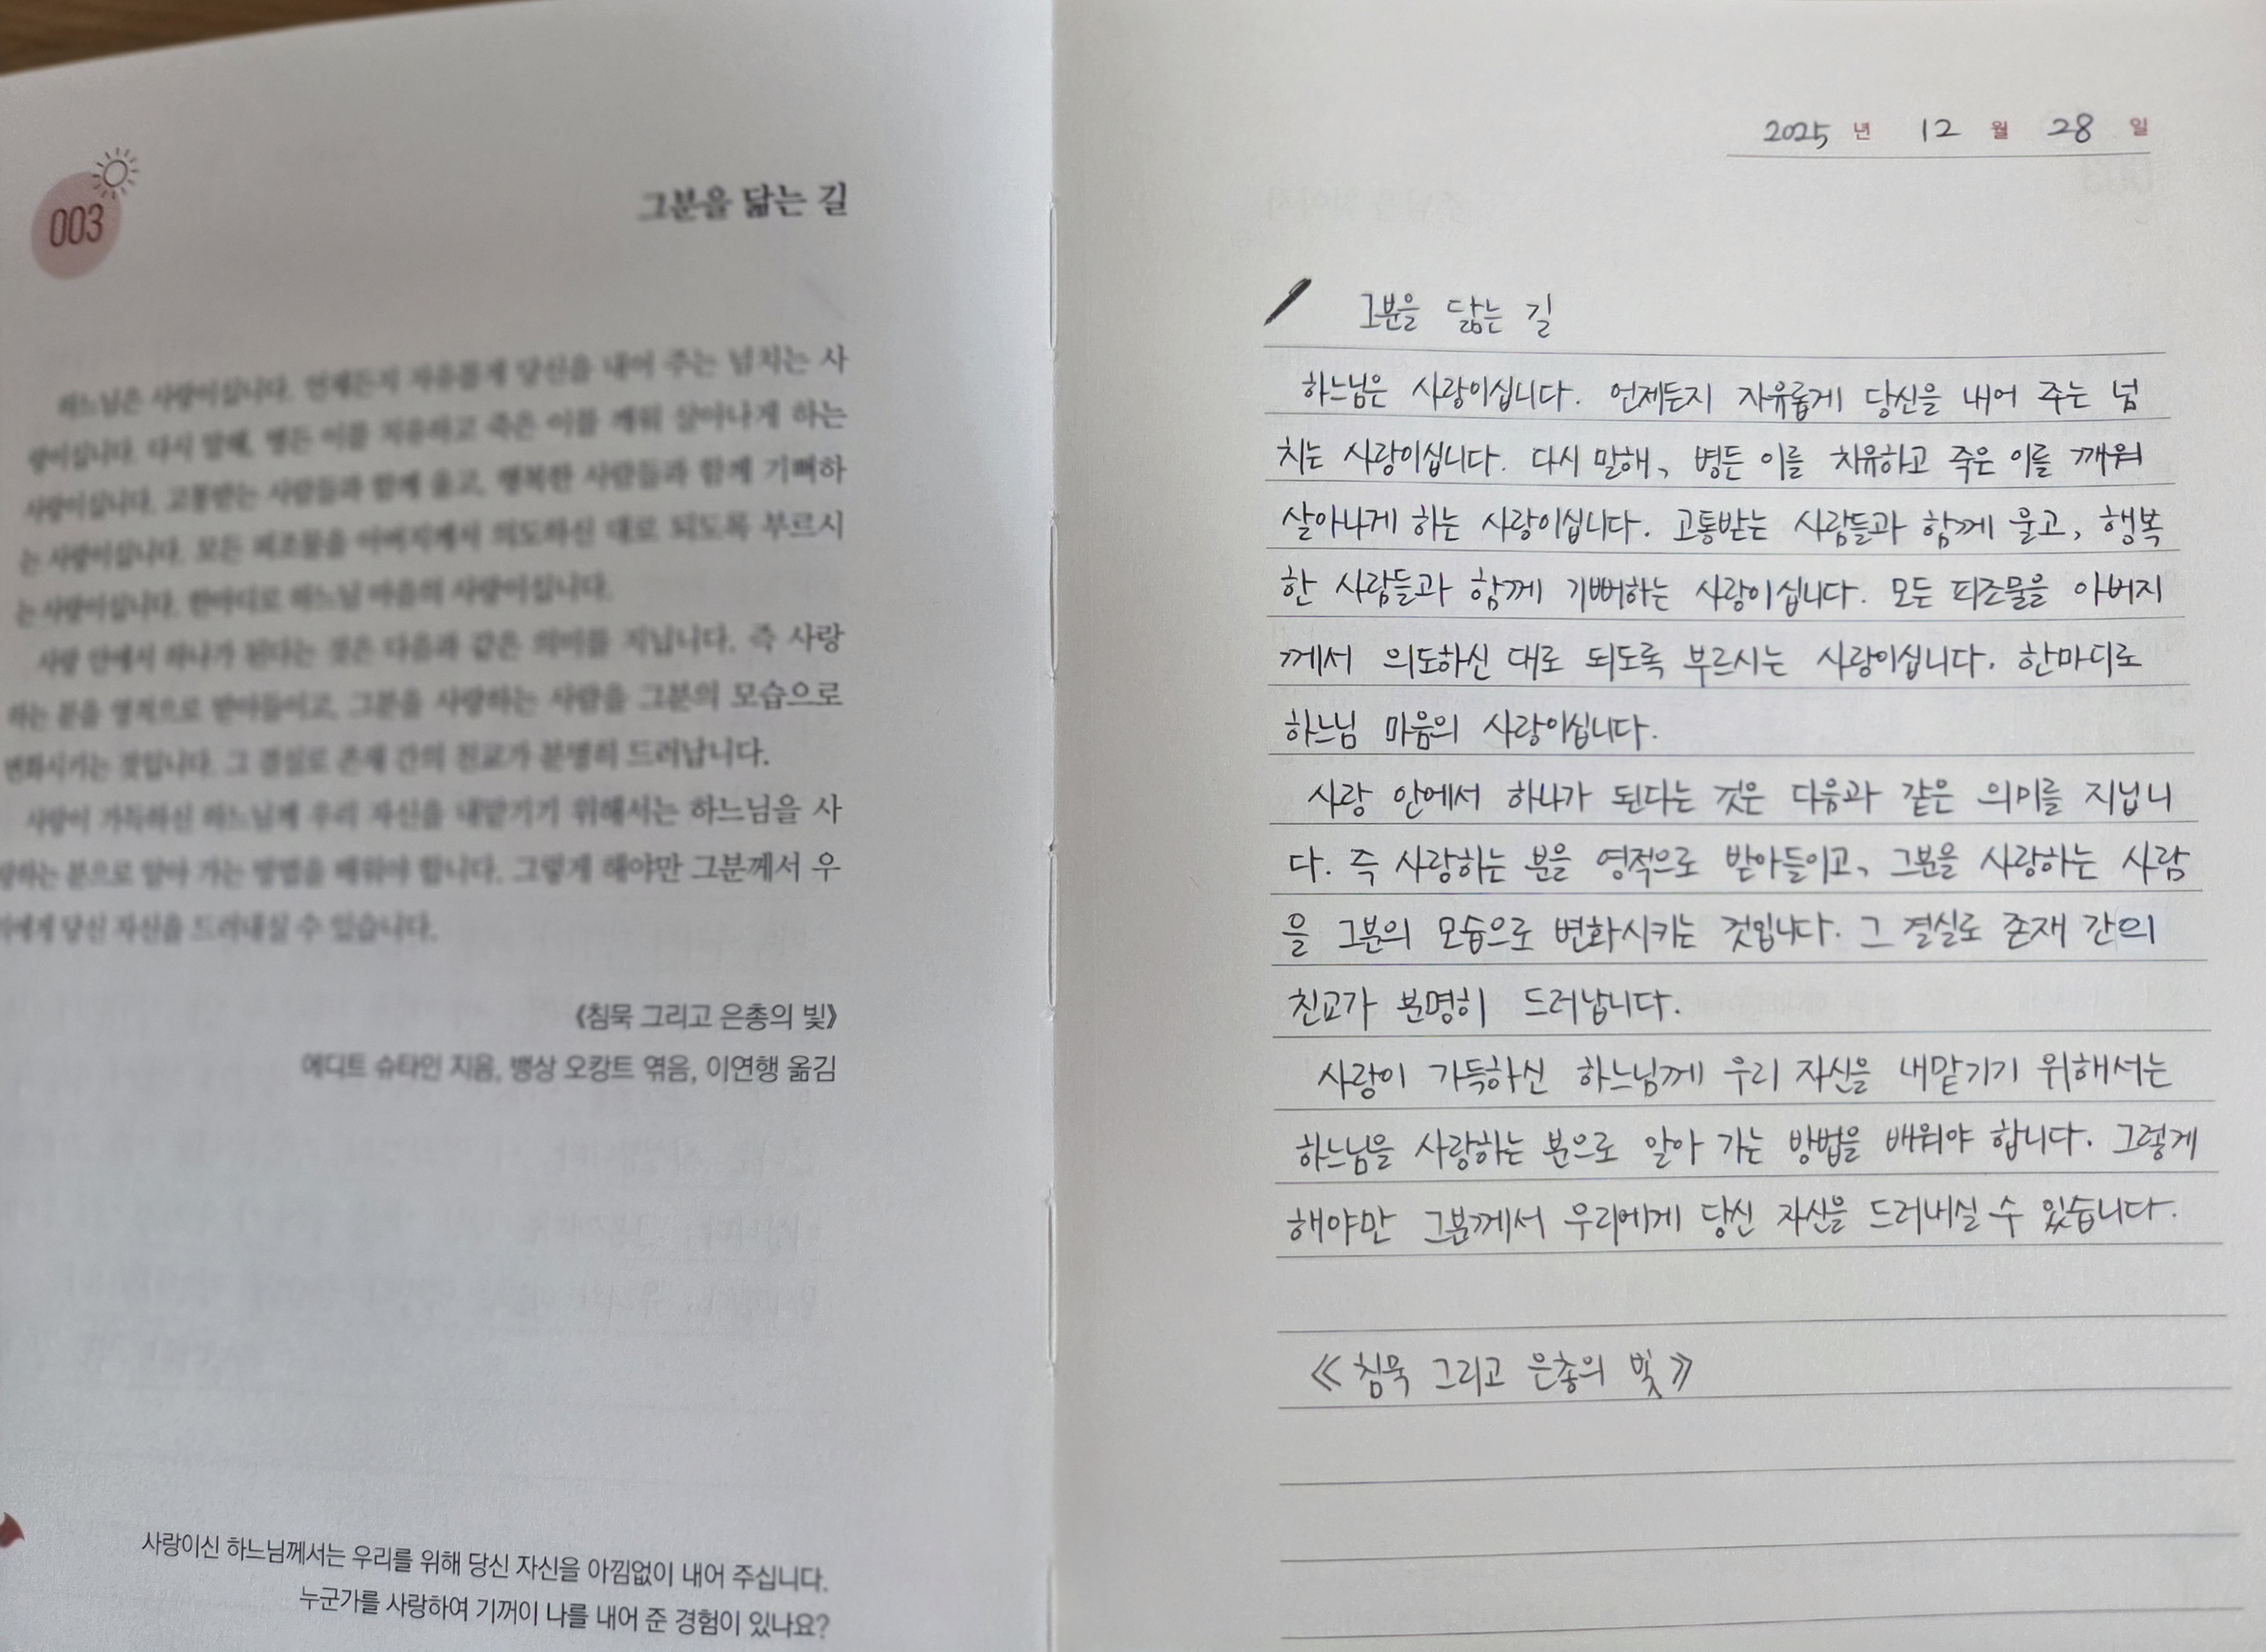 003
그분을 닮는 길
하느님은 사랑이십니다. 언제든지 자유롭게 당신을 내어 주는 넘치는 사
랑이십니다. 다시 말해, 병든 이를 치유하고 죽은 이를 깨워 살아나게 하는
사랑이십니다. 고통받는 사람들과 함께 울고, 행복한 사람들과 함께 기뻐하
는 사랑이십니다. 모든 피조물을 아버지께서 의도하신 대로 되도록 부르시
는 사랑이십니다. 한마디로 하느님 마음의 사랑이십니다.
사랑 안에서 하나가 된다는 것은 다음과 같은 의미를 지닙니다. 즉 사랑
하는 분을 영적으로 받아들이고, 그분을 사랑하는 사람을 그분의 모습으로
변화시키는 것입니다. 그 결실로 존재 간의 친교가 분명히 드러납니다.
사랑이 가득하신 하느님께 우리 자신을 내맡기기 위해서는 하느님을 사
랑하는 분으로 알아 가는 방법을 배워야 합니다. 그렇게 해야만 그분께서 우
리에게 당신 자신을 드러내실 수 있습니다.
《침묵 그리고 은총의 빛》
에디트 슈타인 지음, 뱅상 오캉트 엮음, 이연행 옮김
사랑이신 하느님께서는 우리를 위해 당신 자신을 아낌없이 내어 주십니다.
누군가를 사랑하여 기꺼이 나를 내어 준 경험이 있나요?
2025 년 12 월 28 일
그분을 닮는 길
하느님은 사랑이십니다. 언제든지 자유롭게 당신을 내어 주는 넘
치는 사랑이십니다. 다시 말해, 병든 이를 치유하고 죽은 이를 깨워
살아나게 하는 사랑이십니다. 고통받는 사람들과 함께 울고, 행복
한 사람들과 함께 기뻐하는 사랑이십니다. 모든 피조물을 아버지
께서 의도하신 대로 되도록 부르시는 사랑이십니다. 한마디로
하느님 마음의 사랑이십니다.
사랑 안에서 하나가 된다는 것은 다음과 같은 의미를 지닙니
다. 즉 사랑하는 분을 영적으로 받아들이고, 그분을 사랑하는 사람
을 그분의 모습으로 변화시키는 것입니다. 그 결실로 존재 간의
친교가 분명히 드러납니다.
사랑이 가득하신 하느님께 우리 자신을 내맡기기 위해서는
하느님을 사랑하는 분으로 알아 가는 방법을 배워야 합니다. 그렇게
해야만 그분께서 우리에게 당신 자신을 드러내실 수 있습니다.
《침묵 그리고 은총의 빛》